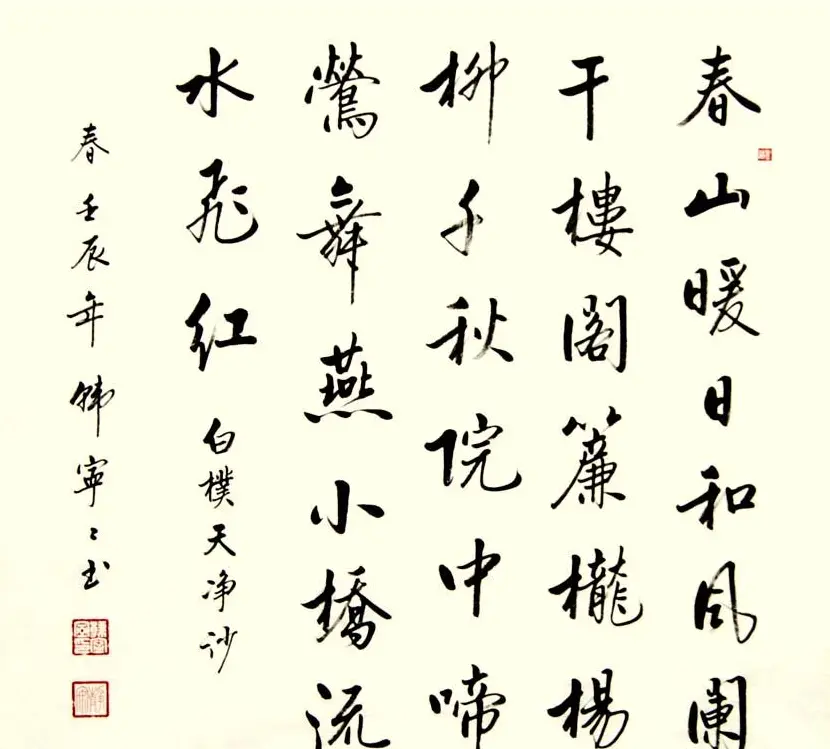 春山暖日和风阑
干樓閣簾櫳楊
柳千秋院中啼
鶯舞燕小橋流
水飛红 白樸天净沙
春壬辰年韩寧〻书